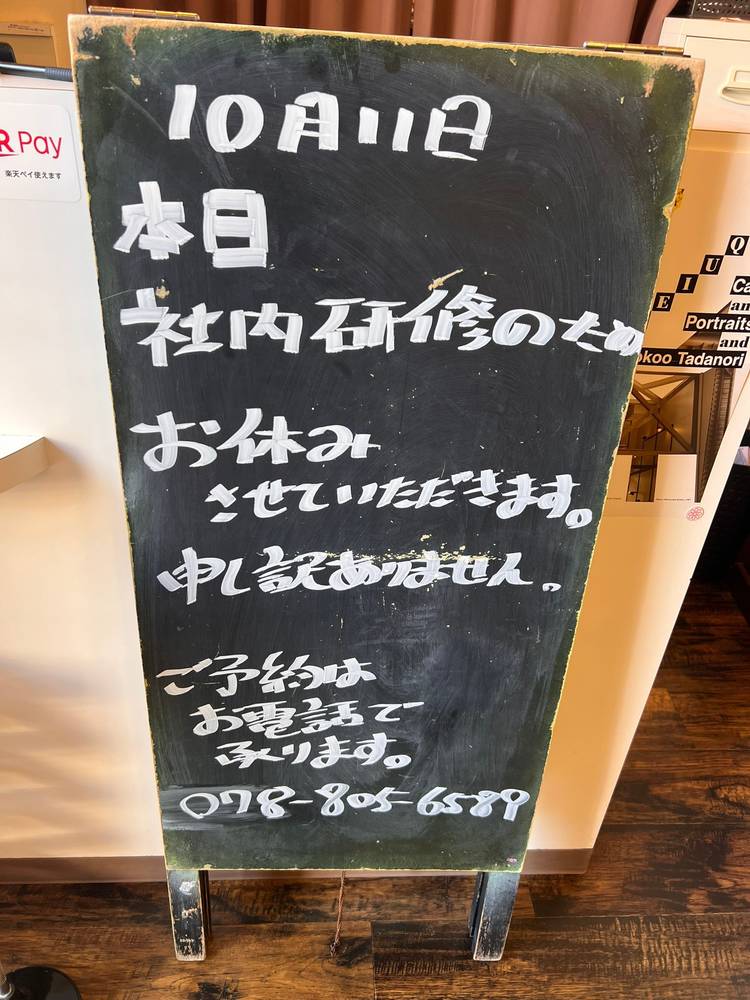 10月11日
本日
社内研修のため
お休み
させていただきます。
申し訳ありません。
ご予約は
お電話で
承ります。
078-805-6589
R Pay
楽天ペイ使えます
EIUQ
Ca
an
Portraits
and
okoo Tadanori